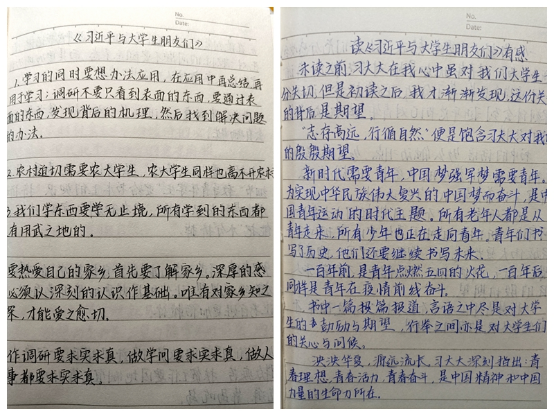 No.
Date:
《习近平与大学生朋友们》
1.学习的同时要想办法应用,在应用中再总结再
用于学习;调研不要只看到表面的东西,要通过表
面的东西,发现背后的机理,然后找到解决问题
的办法。
2.农村迫切需要农大学生,农大学生同样也离不开农村
3.我们学东西要学无止境,所有学到的东西都
有用武之地的。
要热爱自己的家乡,首先要了解家乡。深厚的感
必须以深刻的认识作基础。唯有对家乡知之
深,才能爱之愈切。
作调研要求实求真,做学问要求实求真,做人
事都要求实求真。
No.
Date:
读《习近平与大学生朋友们》有感
未读之前,习大大在我心中虽对我们大学生
分关切,但是初读之后,我才渐渐发现,这份关
的背后是期望。
“志存高远,行循自然”便是饱含习大大对我
的殷殷期望。
新时代需要青年,中国梦强军梦需要青年。
为实现中华民族伟大复兴的中国梦而奋斗,是中
国青年运动的时代主题。所有老年人都是从
青年走来,所有少年也正在走向青年。青年们书
写了历史,他们还要继续书写未来。
一百年前,是青年点燃五四的火花,一百年后
同样是青年在疫情前线奋斗。
书中一篇报篇报道,言语之中尽是对大学
生的鼓励与期望,行举之间亦是对大学生们
的关心与问候。
泱泱华夏,源远流长,习大大深刻指出:青
春理想,青春活力,青春奋斗,是中国精神和中国
力量的生命力所在。